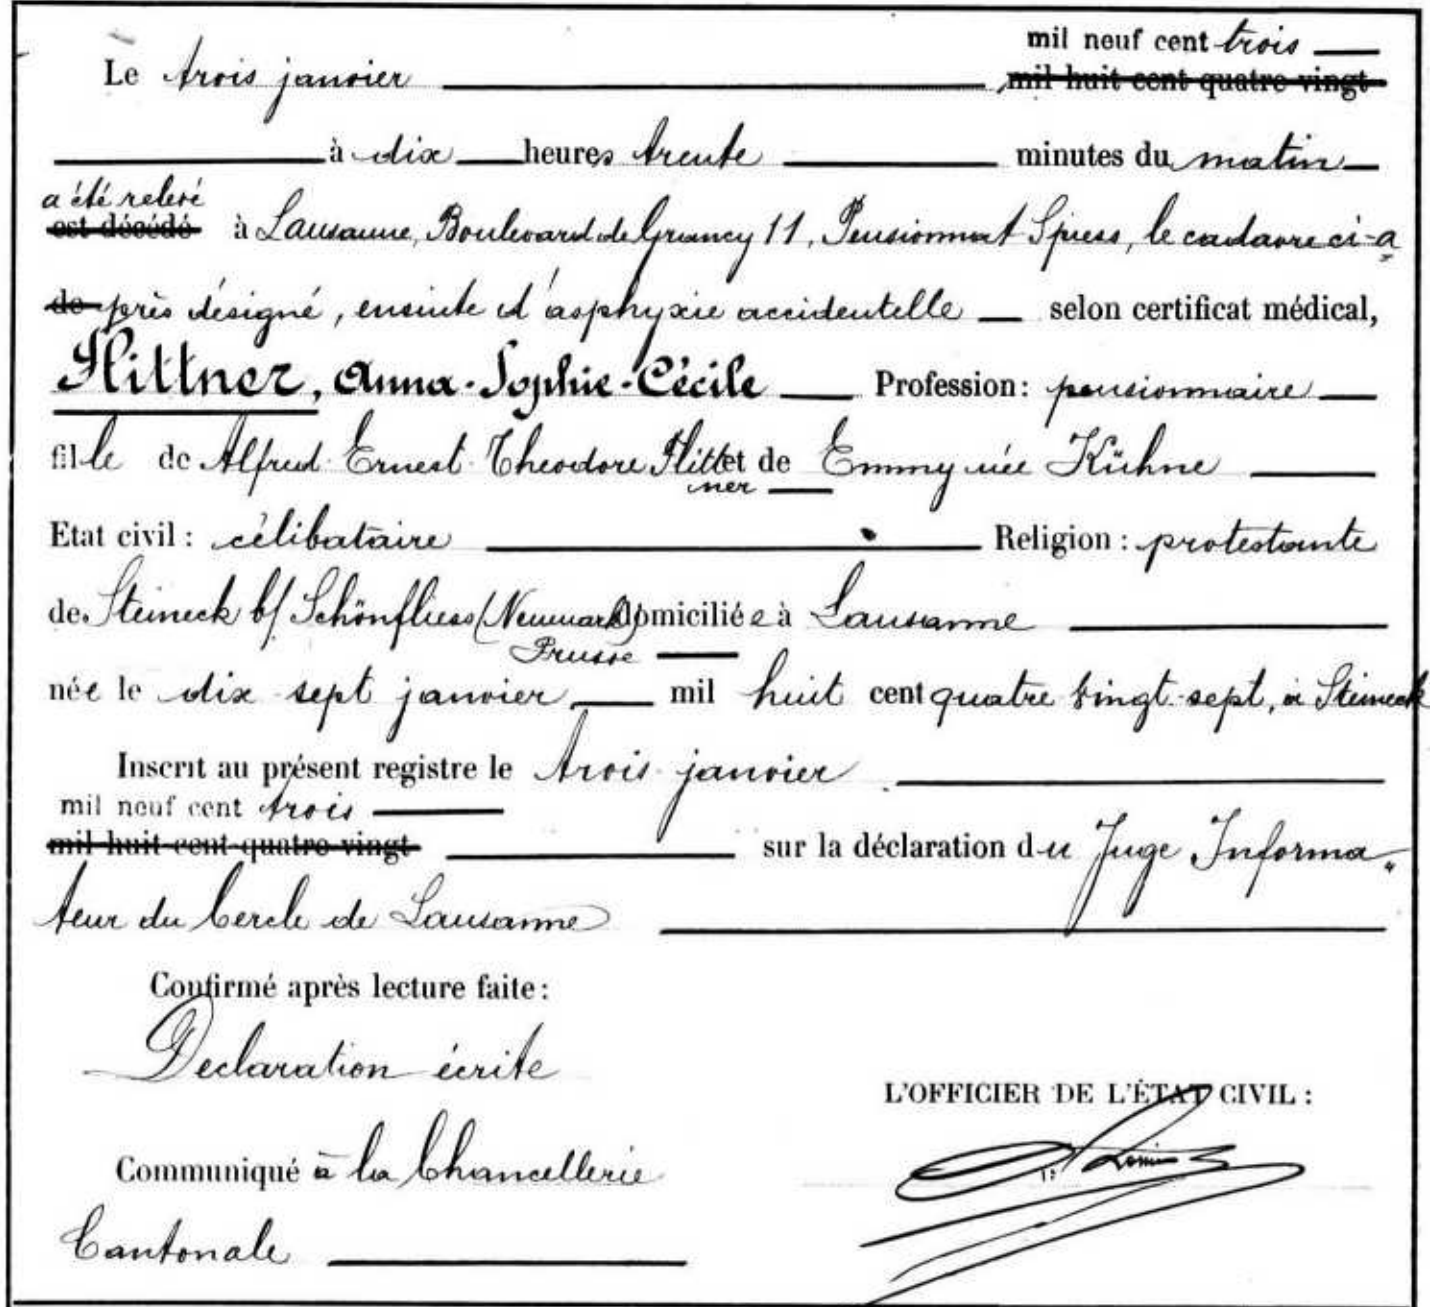 mil neuf cent trois
Le trois janvier mil huit cent quatre vingt
à dix heures trente minutes du matin
a été relevé
est décédé à Lausanne, Boulevard de Grancy 11, Pensionnat Spiess, le cadavre ci-a
de près désigné, ensuite d'asphyxie accidentelle selon certificat médical,
Flittner, Anna-Sophie-Cécile Profession: pensionnaire
fille de Alfred Ernest Theodore Flitt et de Emmy née Kühne
ner
Etat civil: célibataire Religion: protestante
de Steineck b/ Schönfliess (Neumark) domiciliée à Lausanne
Prusse
née le dix sept janvier mil huit cent quatre vingt-sept, à Steineck
Inscrit au présent registre le trois janvier
mil neuf cent trois
mil huit cent quatre vingt sur la déclaration du Juge Informa„
teur du Cercle de Lausanne
Confirmé après lecture faite:
Declaration écrite
L'OFFICIER DE L'ÉTAT CIVIL:
Communiqué à la Chancellerie
Cantonale